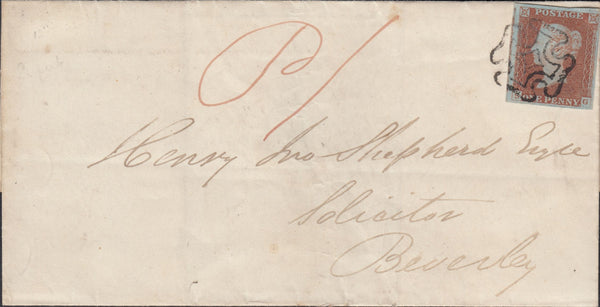 POSTAGE
ONE PENNY
P/
Henry Jno Shepherd Esqre
Solicitor
Beverley